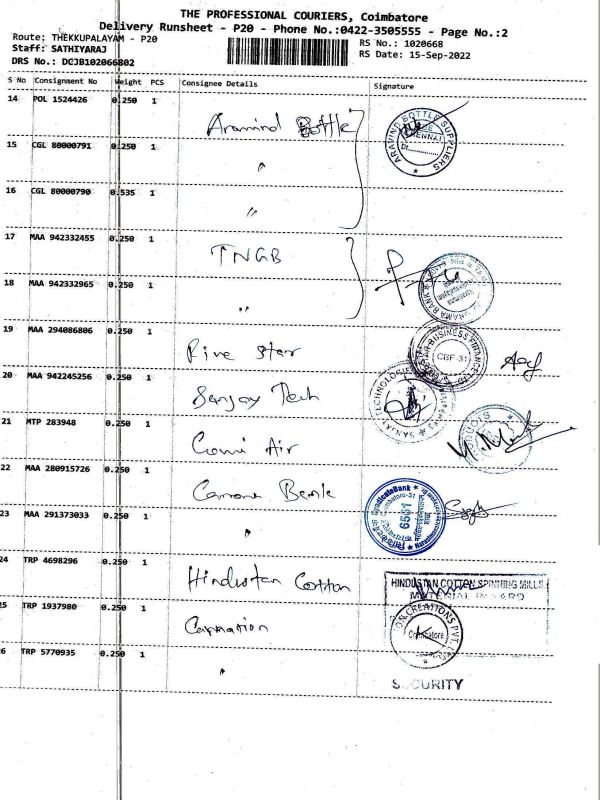 THE PROFESSIONAL COURIERS, Coimbatore
Delivery Runsheet - P20 - Phone No.:0422-3505555 - Page No.:2
Route: THEKKUPALAYAM - P20
RS No.: 1020668
Staff: SATHIYARAJ
RS Date: 15-Sep-2022
DRS No.: DCJB102066802
S No Consignment No Weight PCS Consignee Details Signature
14 POL 1524426 0.250 1 Aravind Bottle
ARAVIND BOTTLE SUPPLIERS
15 CGL 80000791 0.250 1 "
16 CGL 80000790 0.535 1 "
17 MAA 942332455 0.250 1 TNGB
18 MAA 942332965 0.250 1 "
19 MAA 294086806 0.250 1 Five Star
BUSINESS FINANCE
CBF-31
20 MAA 942245256 0.250 1 Sanjay Tech
SANJAY TECHNOLOGIES
21 MTP 283948 0.250 1 Air
22 MAA 280915726 0.250 1 Canara Bank
SyndicateBank
Coimbatore-31
6551
23 MAA 291373033 0.250 1 "
24 TRP 4698296 0.250 1 Hindustan Cotton
HINDUSTAN COTTON SPINNING MILLS
MATERIAL INWARD
25 TRP 1937980 0.250 1 Carnation
CREATIONS PVT.
Coimbatore
26 TRP 5770935 0.250 1 "
SECURITY